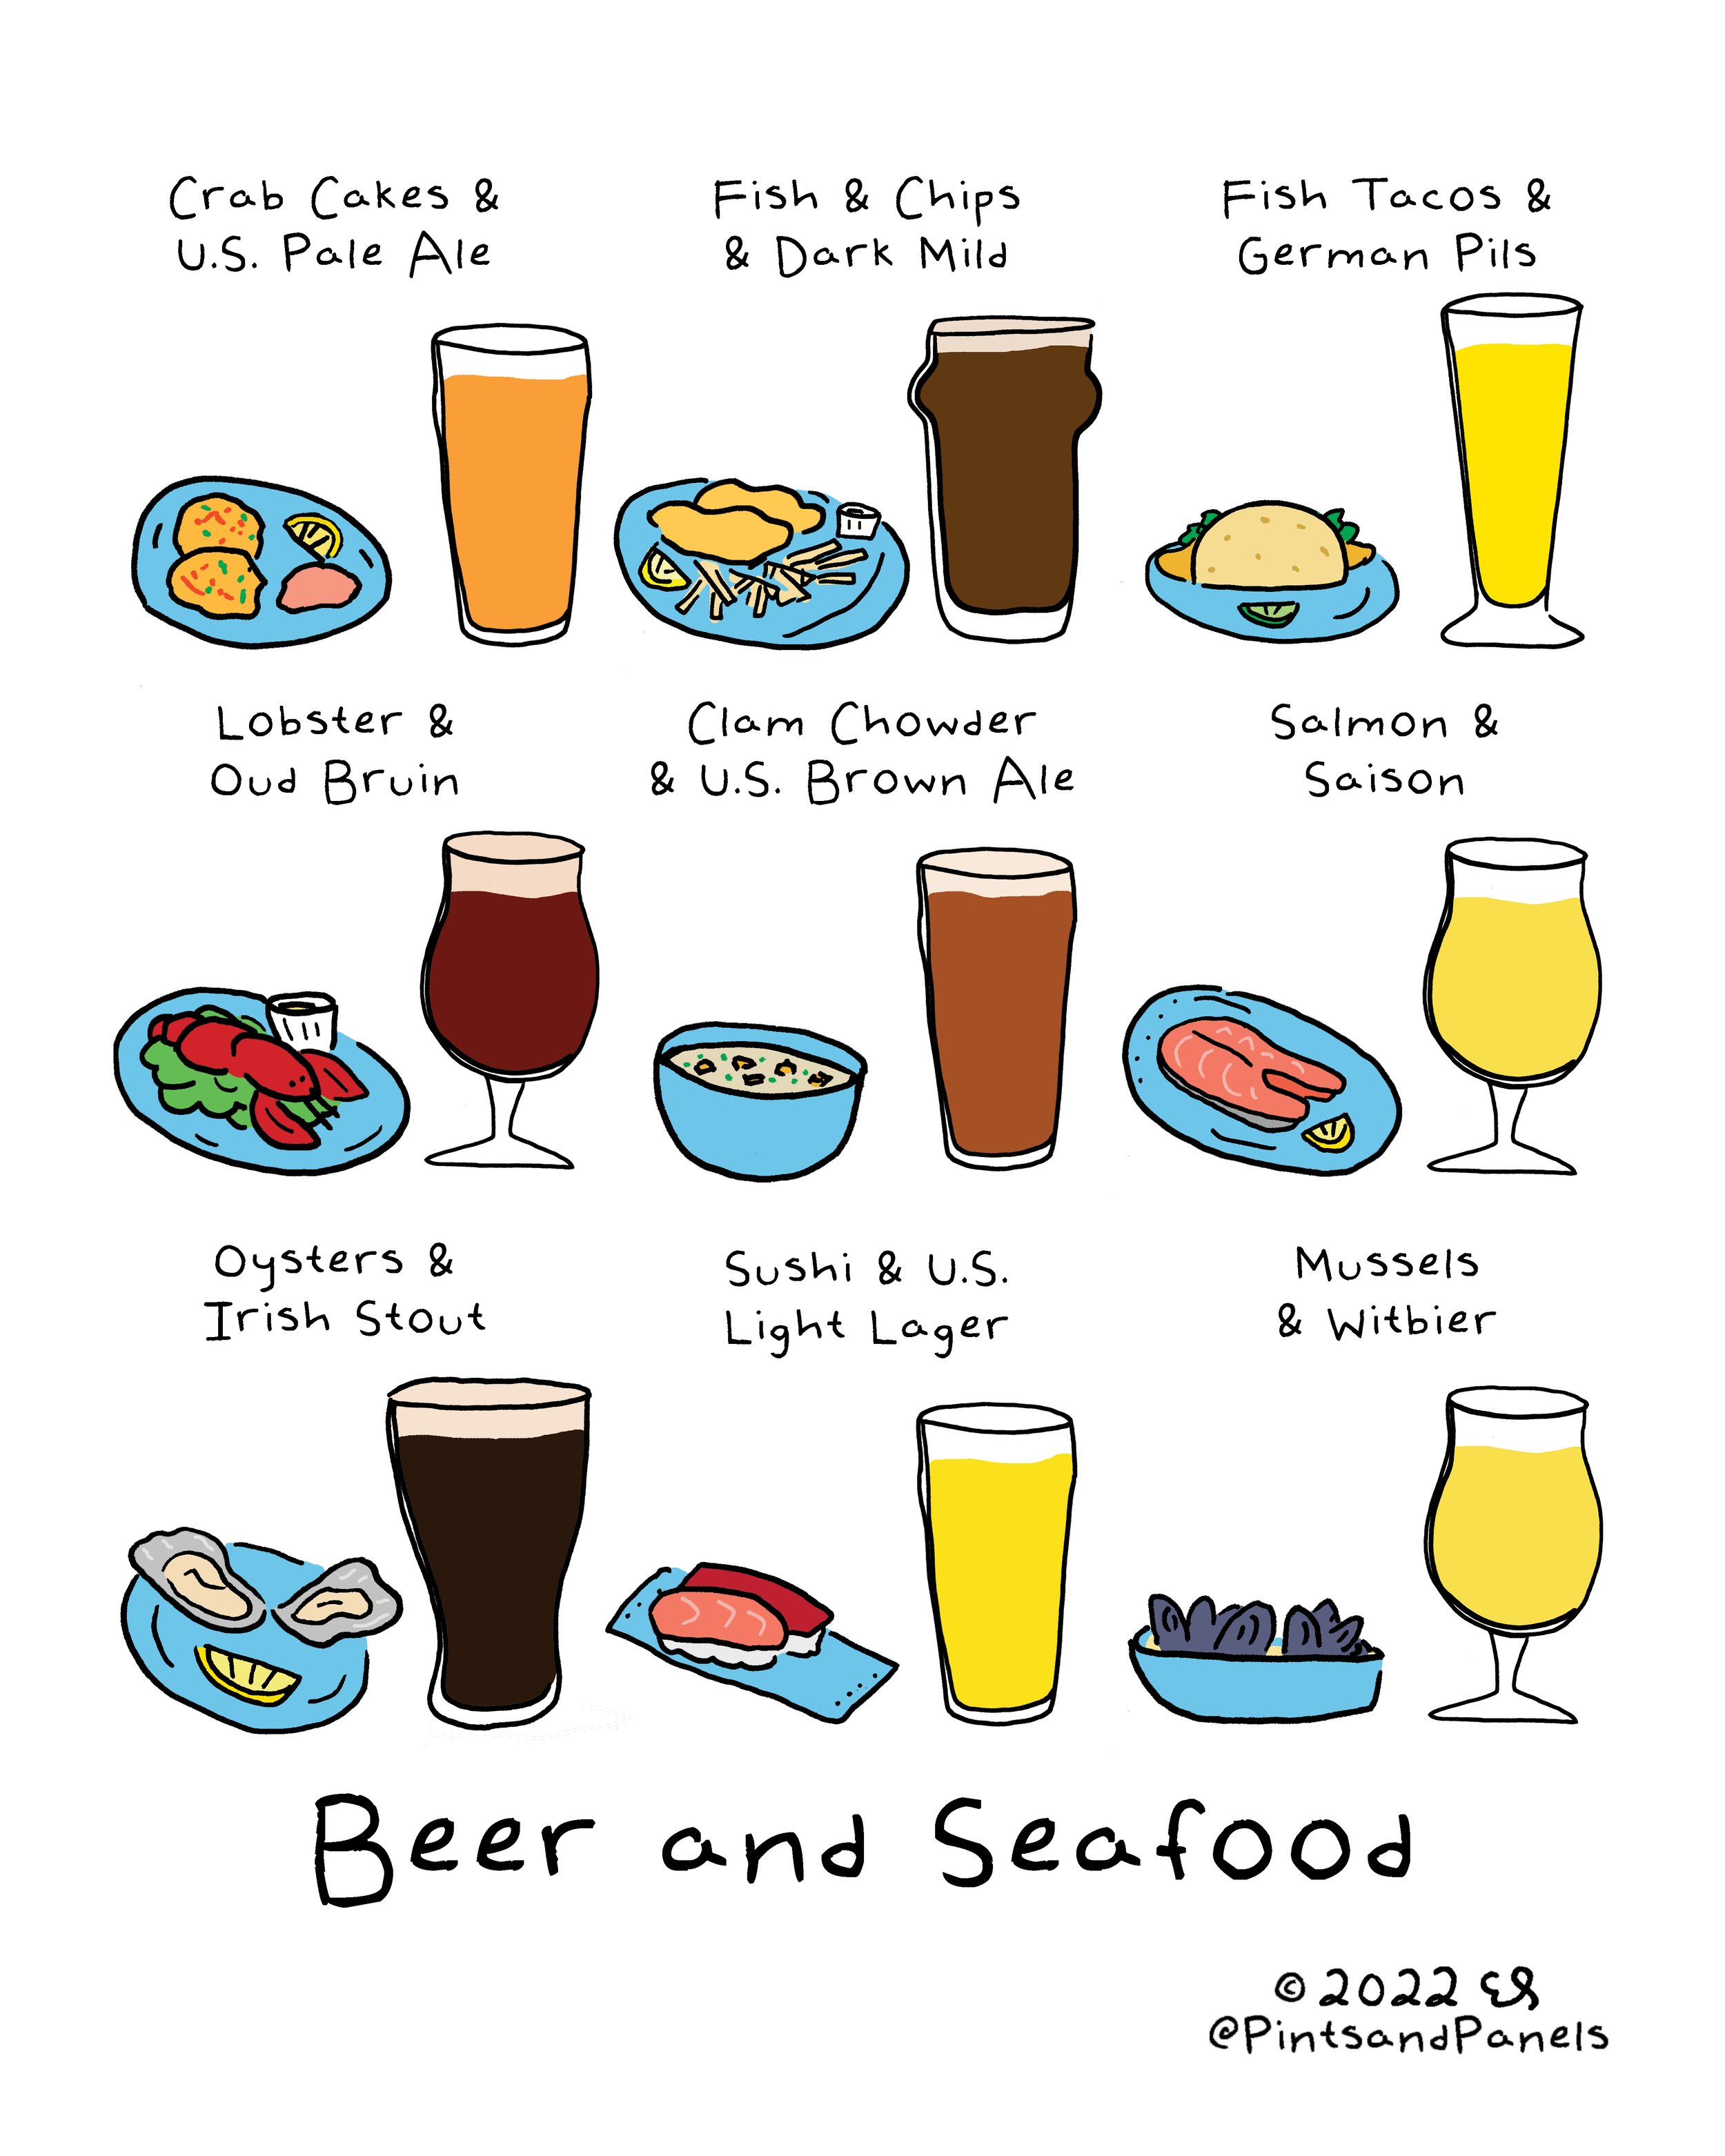 Crab Cakes &
U.S. Pale Ale
Fish & Chips
& Dark Mild
Fish Tacos &
German Pils
Lobster &
Oud Bruin
Clam Chowder
& U.S. Brown Ale
Salmon &
Saison
Oysters &
Irish Stout
Sushi & U.S.
Light Lager
Mussels
& Witbier
Beer and Seafood
© 2022 ES
@PintsandPanels